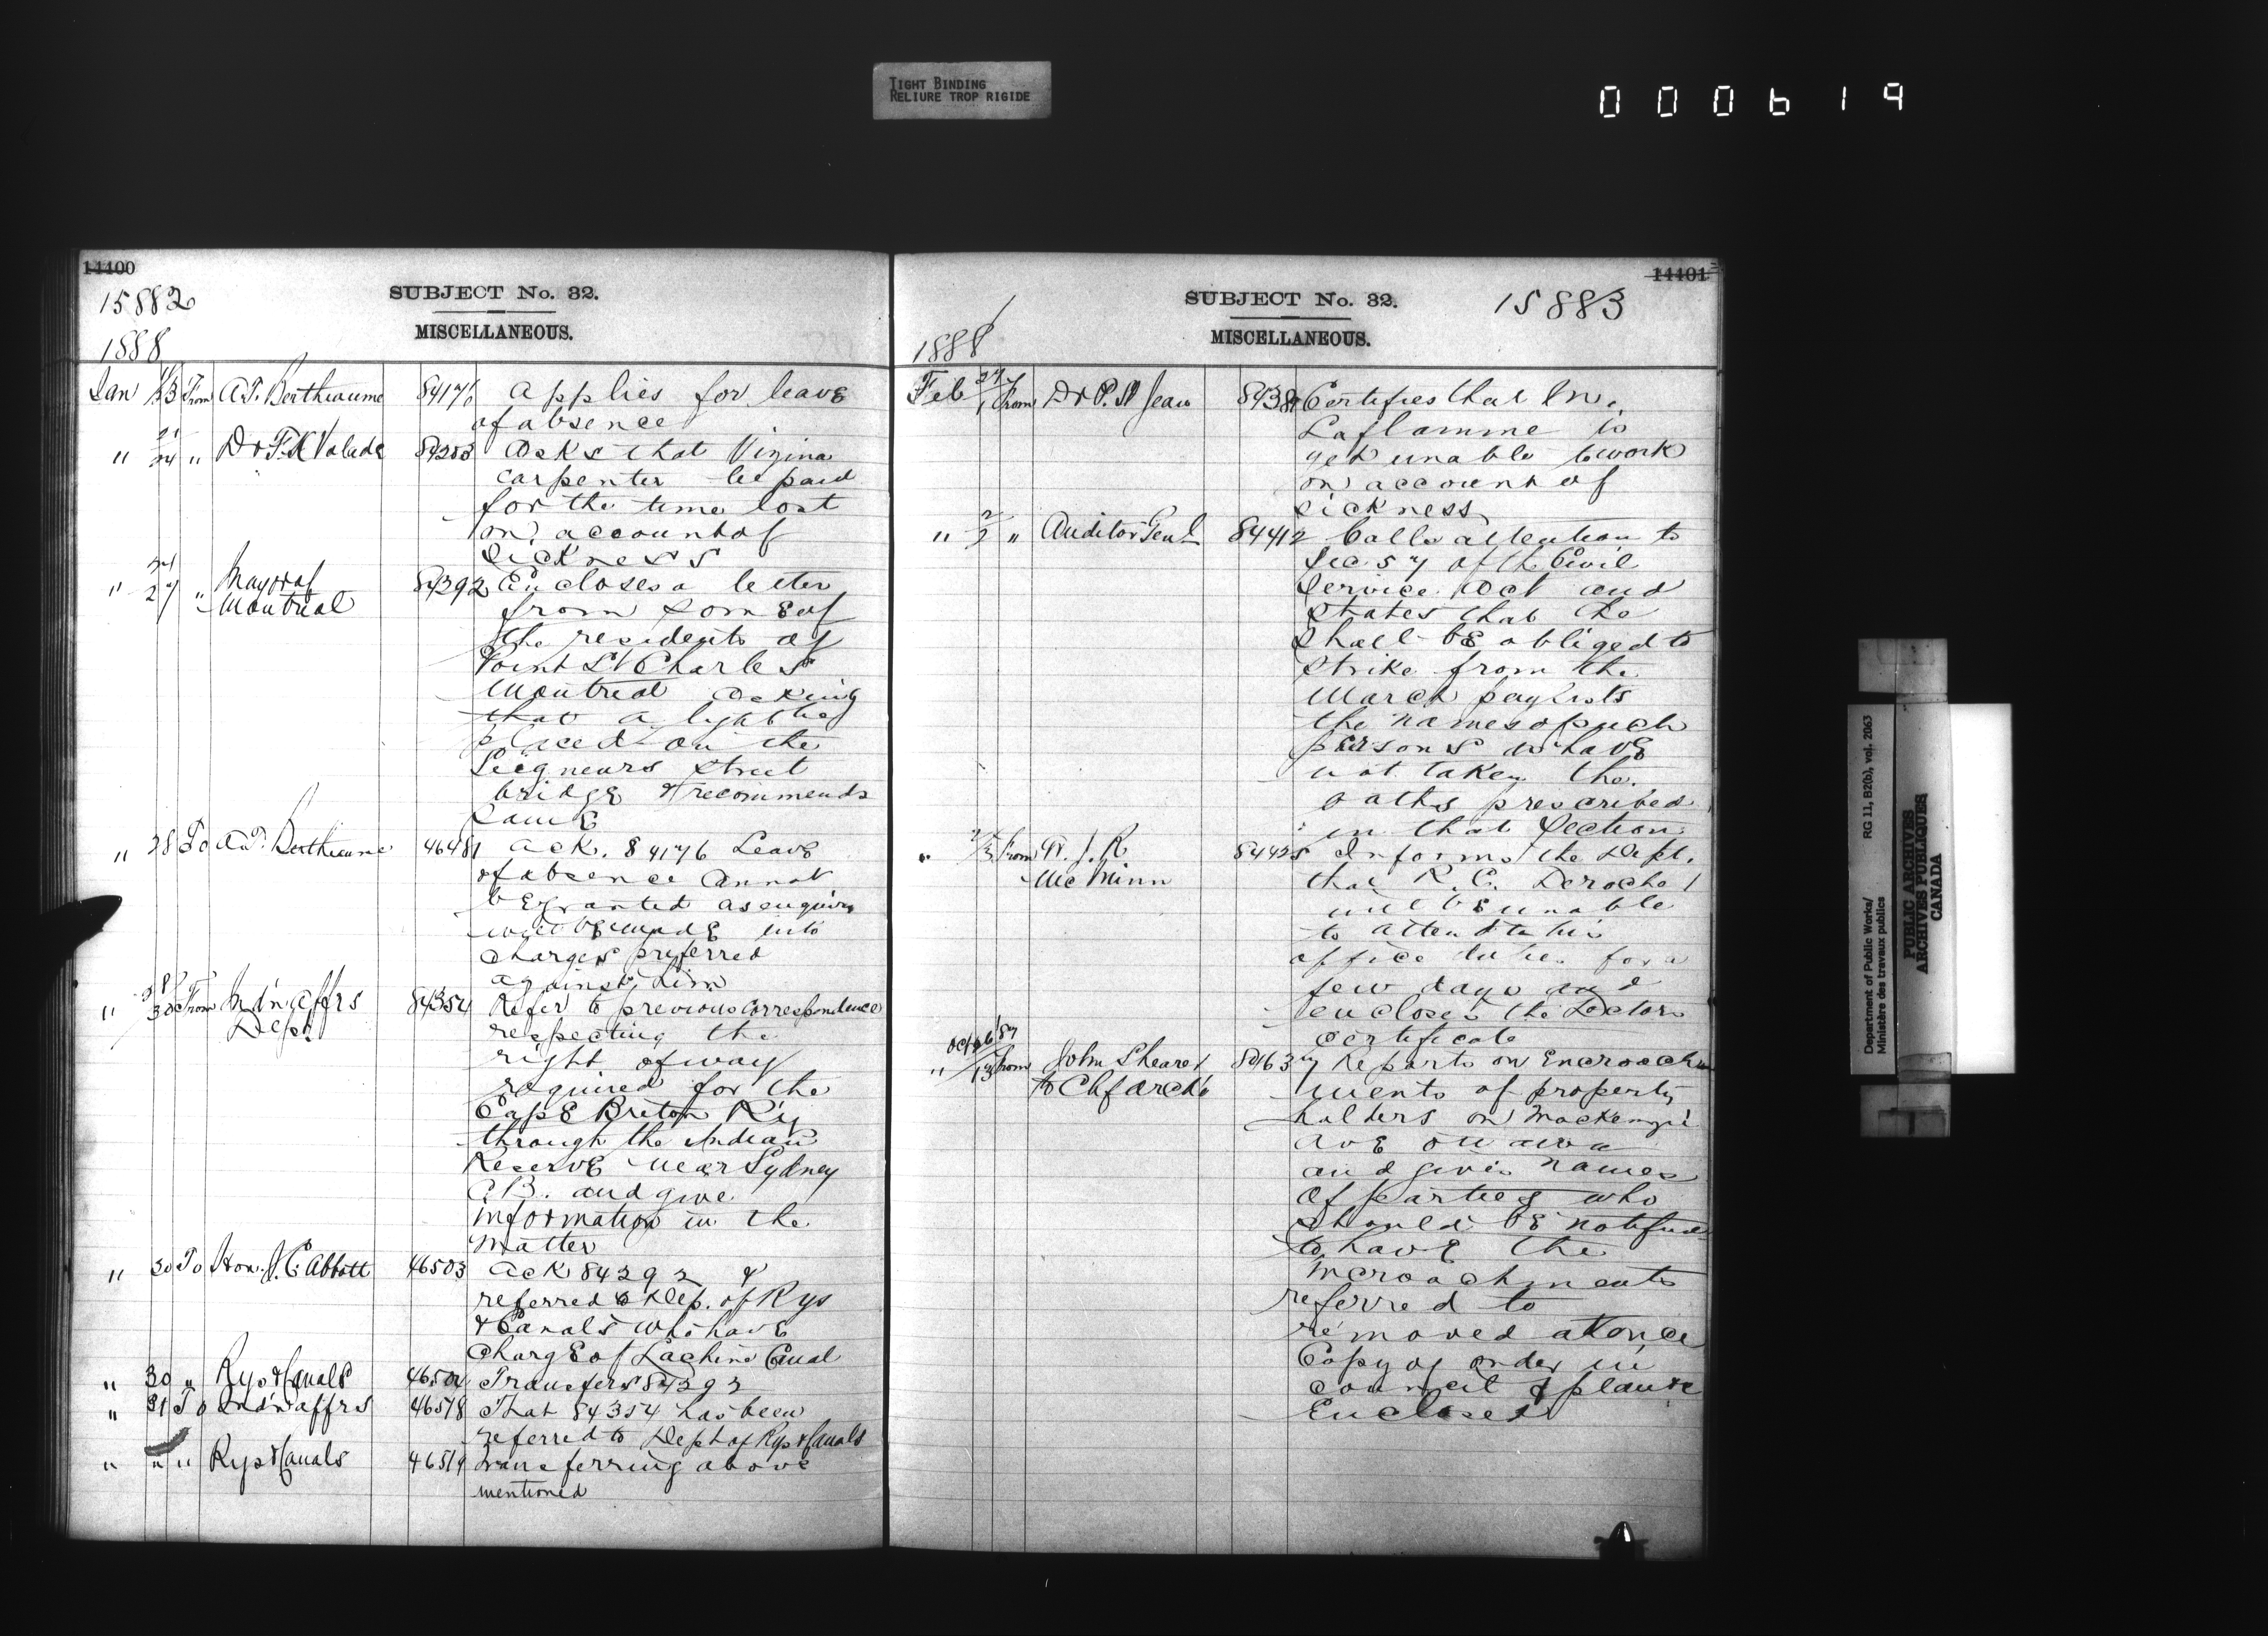 TIGHT BINDING
RELIURE TROP RIGIDE
000619
14400
15882
SUBJECT No. 32.
MISCELLANEOUS.
1888
Jan 11/13 From A.T. Bertheaume 84176 Applies for leave
of absence
" 21/24 " Dr F.K. Valade 84203 Asks that Vizina
carpenter be paid
for the time lost
on account of
sickness
" 24/27 " Mayor of Montreal 84292 Encloses a letter
from some of
the residents of
Point St Charles
Montreal asking
that a light be
placed on the
Seigneurs street
bridge & recommends
same
" 28 To A.T. Bertheaume 46481 Ack. 84176 Leave
of absence cannot
be granted as enquiry
will be made into
charges preferred
against him
" 28/30 From Ind'n Affrs Dept. 84354 Refer to previous correspondence
respecting the
right of way
required for the
Cape Breton Ry
through the Indian
Reserve near Sydney
C.B. and give
information in the
matter
" 30 To Hon. J.C. Abbott 46503 Ack 84292 &
referred to Dep. of Rys
& Canals who have
charge of Lachine Canal
" 30 " Rys & Canals 46504 Transfers 84292
" 31 To Ind'n affrs 46518 That 84354 has been
referred to Dept of Rys & Canals
" " " Rys & Canals 46519 Transferring above
mentioned
14401
SUBJECT No. 32.
15883
MISCELLANEOUS.
1888
Feb 27/1 From Dr P. St Jean 84381 Certifies that Mr.
Laflamme is
yet unable to work
on account of
sickness
" 2/2 " Auditor Genl 84412 Calls attention to
Sec. 57 of the Civil
Service Act and
states that he
shall be obliged to
strike from the
March paylists
the names of such
persons as have
not taken the
oaths prescribed
in that Section
" 2/3 From W.J.R. McMinn 84425 Informs the Dept.
that R.C. Deroche
will be unable
to attend to his
office duties for a
few days and
encloses the Doctors
certificate
Oct 26/87
" 13 From John Shearer to Chf Archt 80163 Reports on Encroach
ments of property
holders on Mackenzie
Ave Ottawa
and gives names
of parties who
should be notified
to have the
incroachments
referred to
removed at once
Copy of order in
council & plans
Enclosed
Department of Public Works/
Ministère des travaux publics
RG 11, B2(b), vol. 2063
PUBLIC ARCHIVES
ARCHIVES PUBLIQUES
CANADA